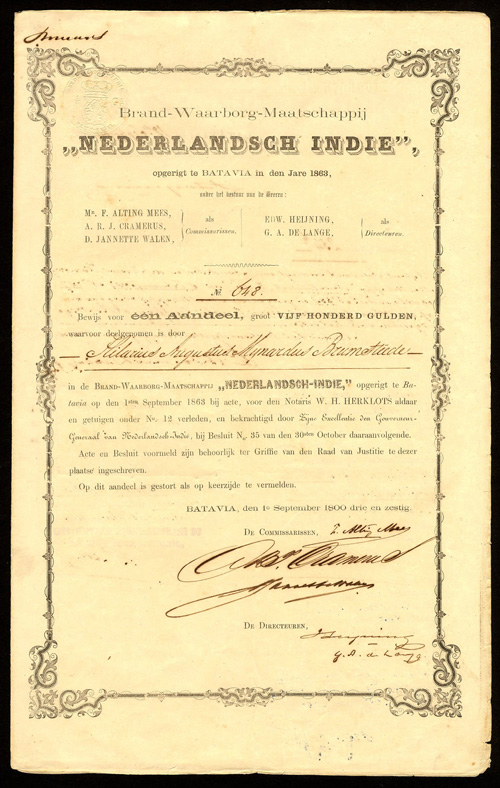 Brand-Waarborg-Maatschappij
„NEDERLANDSCH INDIE”,
opgerigt te BATAVIA in den Jare 1863,
onder het bestuur van de Heeren:
Mr. F. ALTING MEES,
A. R. J. CRAMERUS,
D. JANNETTE WALEN,
als
Commissarissen.
EDW. HEIJNING,
G. A. DE LANGE,
als
Directeuren.
No. 648.
Bewijs voor één Aandeel, groot VIJF HONDERD GULDEN,
waarvoor deelgenomen is door
Augustus Mijnardus
in de BRAND-WAARBORG-MAATSCHAPPIJ „NEDERLANDSCH-INDIE,” opgerigt te Ba-
tavia op den 1sten September 1863 bij acte, voor den Notaris W. H. HERKLOTS aldaar
en getuigen onder No. 12 verleden, en bekrachtigd door Zijne Excellentie den Gouverneur-
Generaal van Nederlandsch-Indie, bij Besluit No. 35 van den 30sten October daaraanvolgende.
Acte en Besluit voormeld zijn behoorlijk ter Griffie van den Raad van Justitie te dezer
plaatse ingeschreven.
Op dit aandeel is gestort als op keerzijde te vermelden.
BATAVIA, den 1e September 1800 drie en zestig.
DE COMMISSARISSEN,
F. Alting Mees
DE DIRECTEUREN,
G. A. de Lange